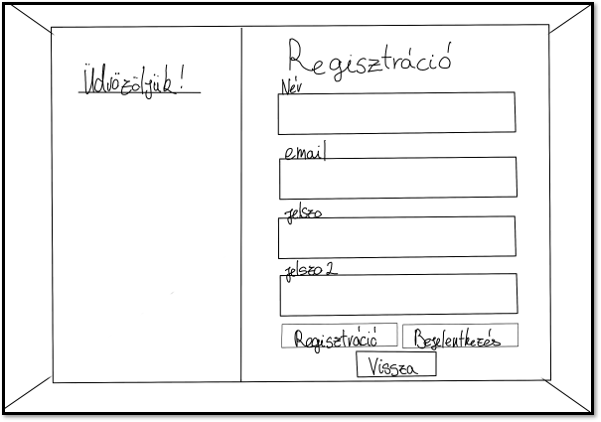 Üdvözöljük!
Regisztráció
Név
email
jelszo
jelszo 2
Regisztráció
Bejelentkezés
Vissza